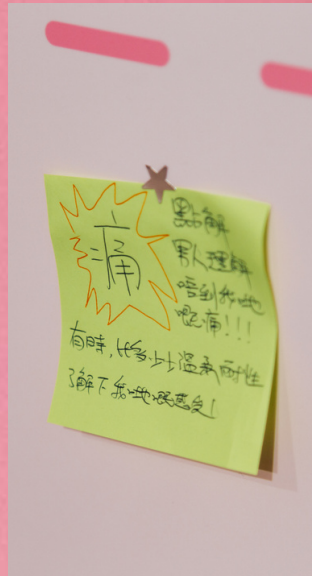 痛
點解
男人理解
唔到我哋
嘅痛!!!
有時,比多少少溫柔耐性
了解下我哋嘅感受!